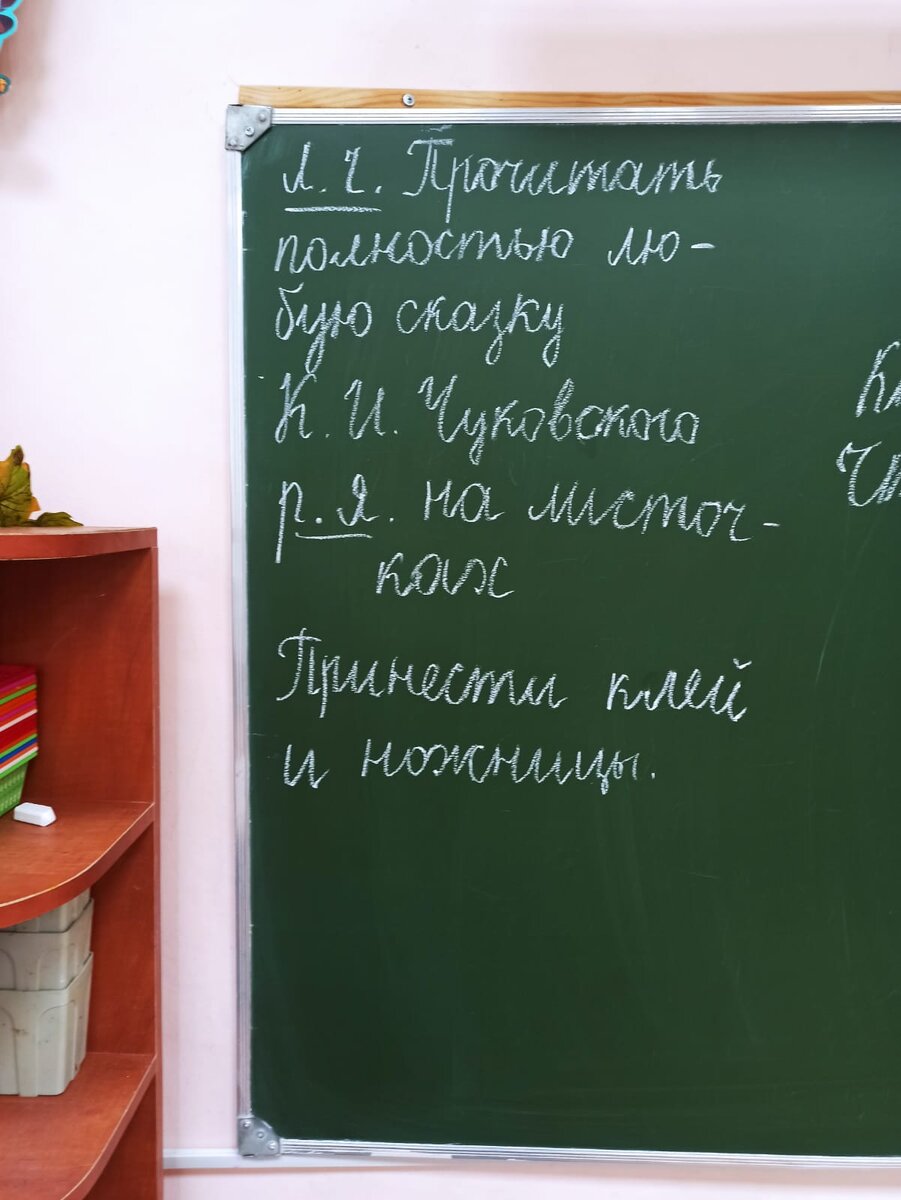 Л. Ч. Прочитать
полностью лю-
бую сказку
К. И. Чуковского
р. Я. на листоч-
ках
Принести клей
и ножницы.